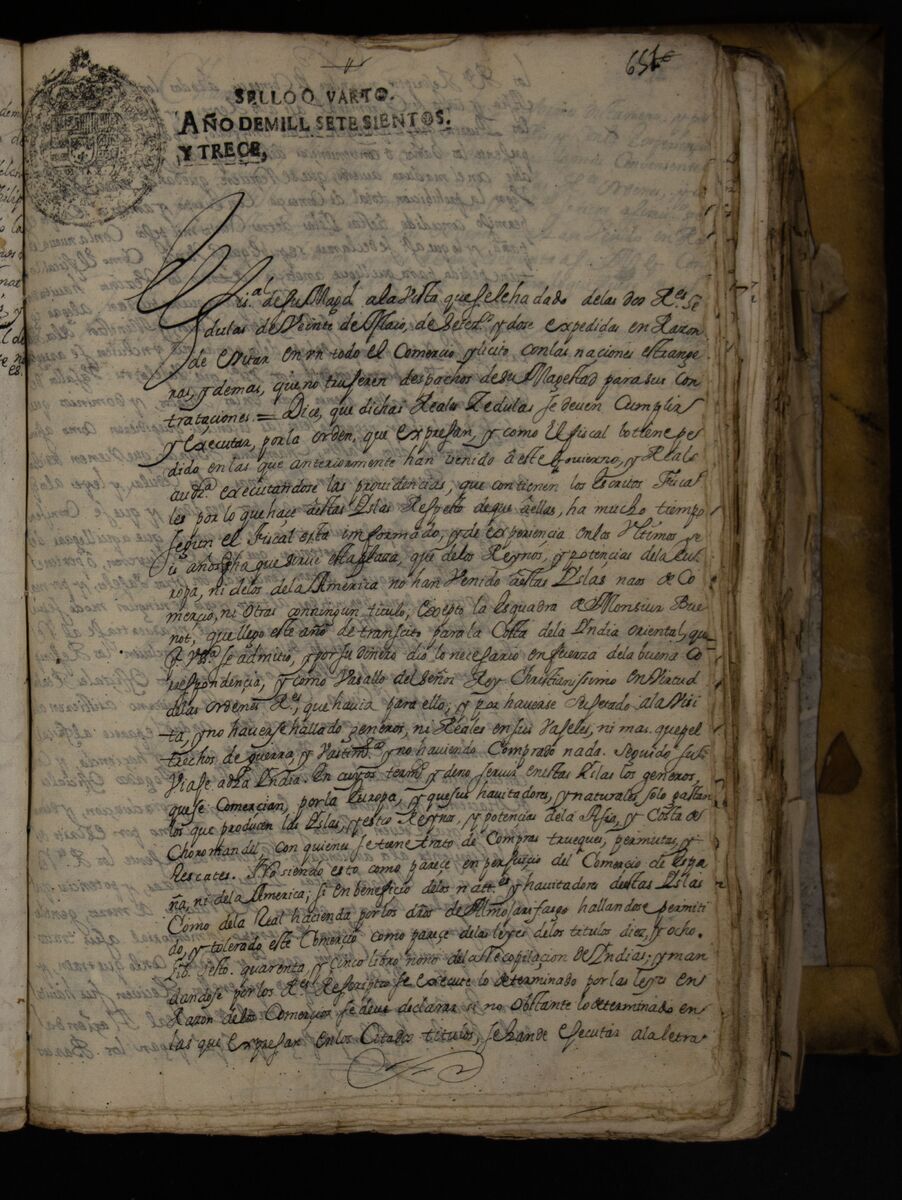 651
SELLO QVARTO.
AÑO DEMILL SETESIENTOS.
Y TRECE,
de su Magd. ala Vista que sele ha dado delas dos Rs. Ce
dulas de Veinte de Maio, de Setezs. y dose expedidas en Razon
de evitar en un todo el Comercio yliçito conlas naciones estrange
ras, y demas, que no trugeren despachos de su Magestad para sus Con
trataçiones = Dice, que dichas Reales Zedulas se deven Cumplir
y executar, por la orden, que expresan, y como El fiscal lo tiene pe
dido en las que anteriormente han venido â este Govierno, y Real
audza. executandose las providencias, que contienen los escritos Fisca
les por lo que haçe â estas Yslas Respecto de que â ellas, ha mucho tiempo
segun el Fiscal esta informado, y de experiencia enlos Vltimos se
is años que ha que sirve esta plaza, que delos Reynos, y potençias dela Eu
ropa, ni delos dela America no han Venido â estas Yslas naos de Co
merçio, ni otras con ningun titulo, Excepto la Esquadra de Monsiur
que llego este año de transcito para la Costa dela Yndia oriental, que
se admitio, y por su dinero dio lo necesario en fuerza dela buena Co
rrespondencia, y como Vasallo del Señor Rey Christianissimo en Virtud
delas ordenes Rs. que havia para ello, y por haverse alavisi
ta, y no haverse hallado generos, ni Reales en sus Vaseles, ni mas que pel
trechos de guerra, y y no haviendo Comprado nada. Seguido su
Viaje a la Yndia. En cuyos termos. y deno servir en estas Yslas los generos,
que se Comercian, por la Europa, y que sus havitadores, y naturales solo gastan
los que producen las Yslas, y estos Reynos, y potençias dela Asia, y Costa de
Choromandel, con quienes se tiene trato de Compras trueques, permutas, y
Rescates. No siendo esto como pareçe en perjuiçio del Comercio de Espa
ña, ni dela America; si en beneficio delos natles. y havitadores destas Yslas
Como dela Real hacienda por los dros de Almojarifasgo hallandose permiti
do, y tolerado este Comercio como pareçe delas leyes delos titulos diez, y ocho.
Lib. Sesto. quarenta, y cinco libro nono dela Recopilaçion de Yndias; y man
dandose por los Rs. Rescriptos se execute lo determinado por las leyes en
Razon delos Comerçios se deve declarar si no obstante lo determinado en
las que expresan enlos Citados titulos, se han de executar ala letra